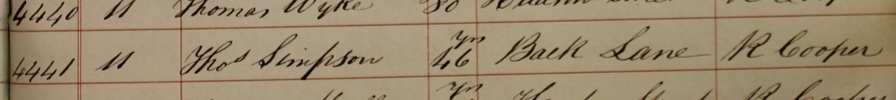 4440 11 Thomas Wyke 80
4441 11 Thos Simpson 46 Yrs Back Lane R Cooper
Yrs